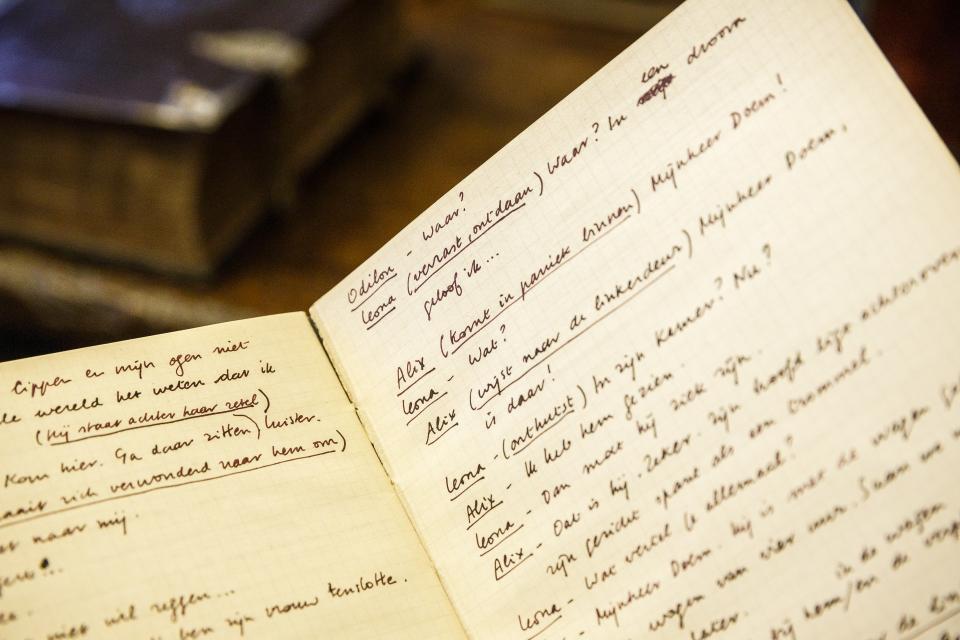 lippen en mijn ogen niet
le wereld het weten dat ik
(Hij staat achter haar zetel)
Kom hier. Ga daar zitten, luister.
zich verwonderd naar hem om)
naar mij.
niet wil zeggen...
ben zijn vrouw tenslotte.
Odilon - Waar?
Leona (verrast, ontdaan) Waar? In een droom
geloof ik...
Alix (komt in paniek binnen) Mijnheer Doem!
Leona - Wat?
Alix (wijst naar de linkerdeur) Mijnheer Doem,
is daar!
Leona - (onthutst) In zijn kamer? Nu?
Alix - Ik heb hem gezien.
Leona - Dan moet hij ziek zijn.
Alix - Dat is hij. Zeker. Zijn hoofd ligt achterover
zijn gezicht spant als een trommel.
Leona - Wat vertel je allemaal?
- Mijnheer Doem. Hij is met de wagen
wagen van vier uur.
later. in de wagen
Hij hem/en de